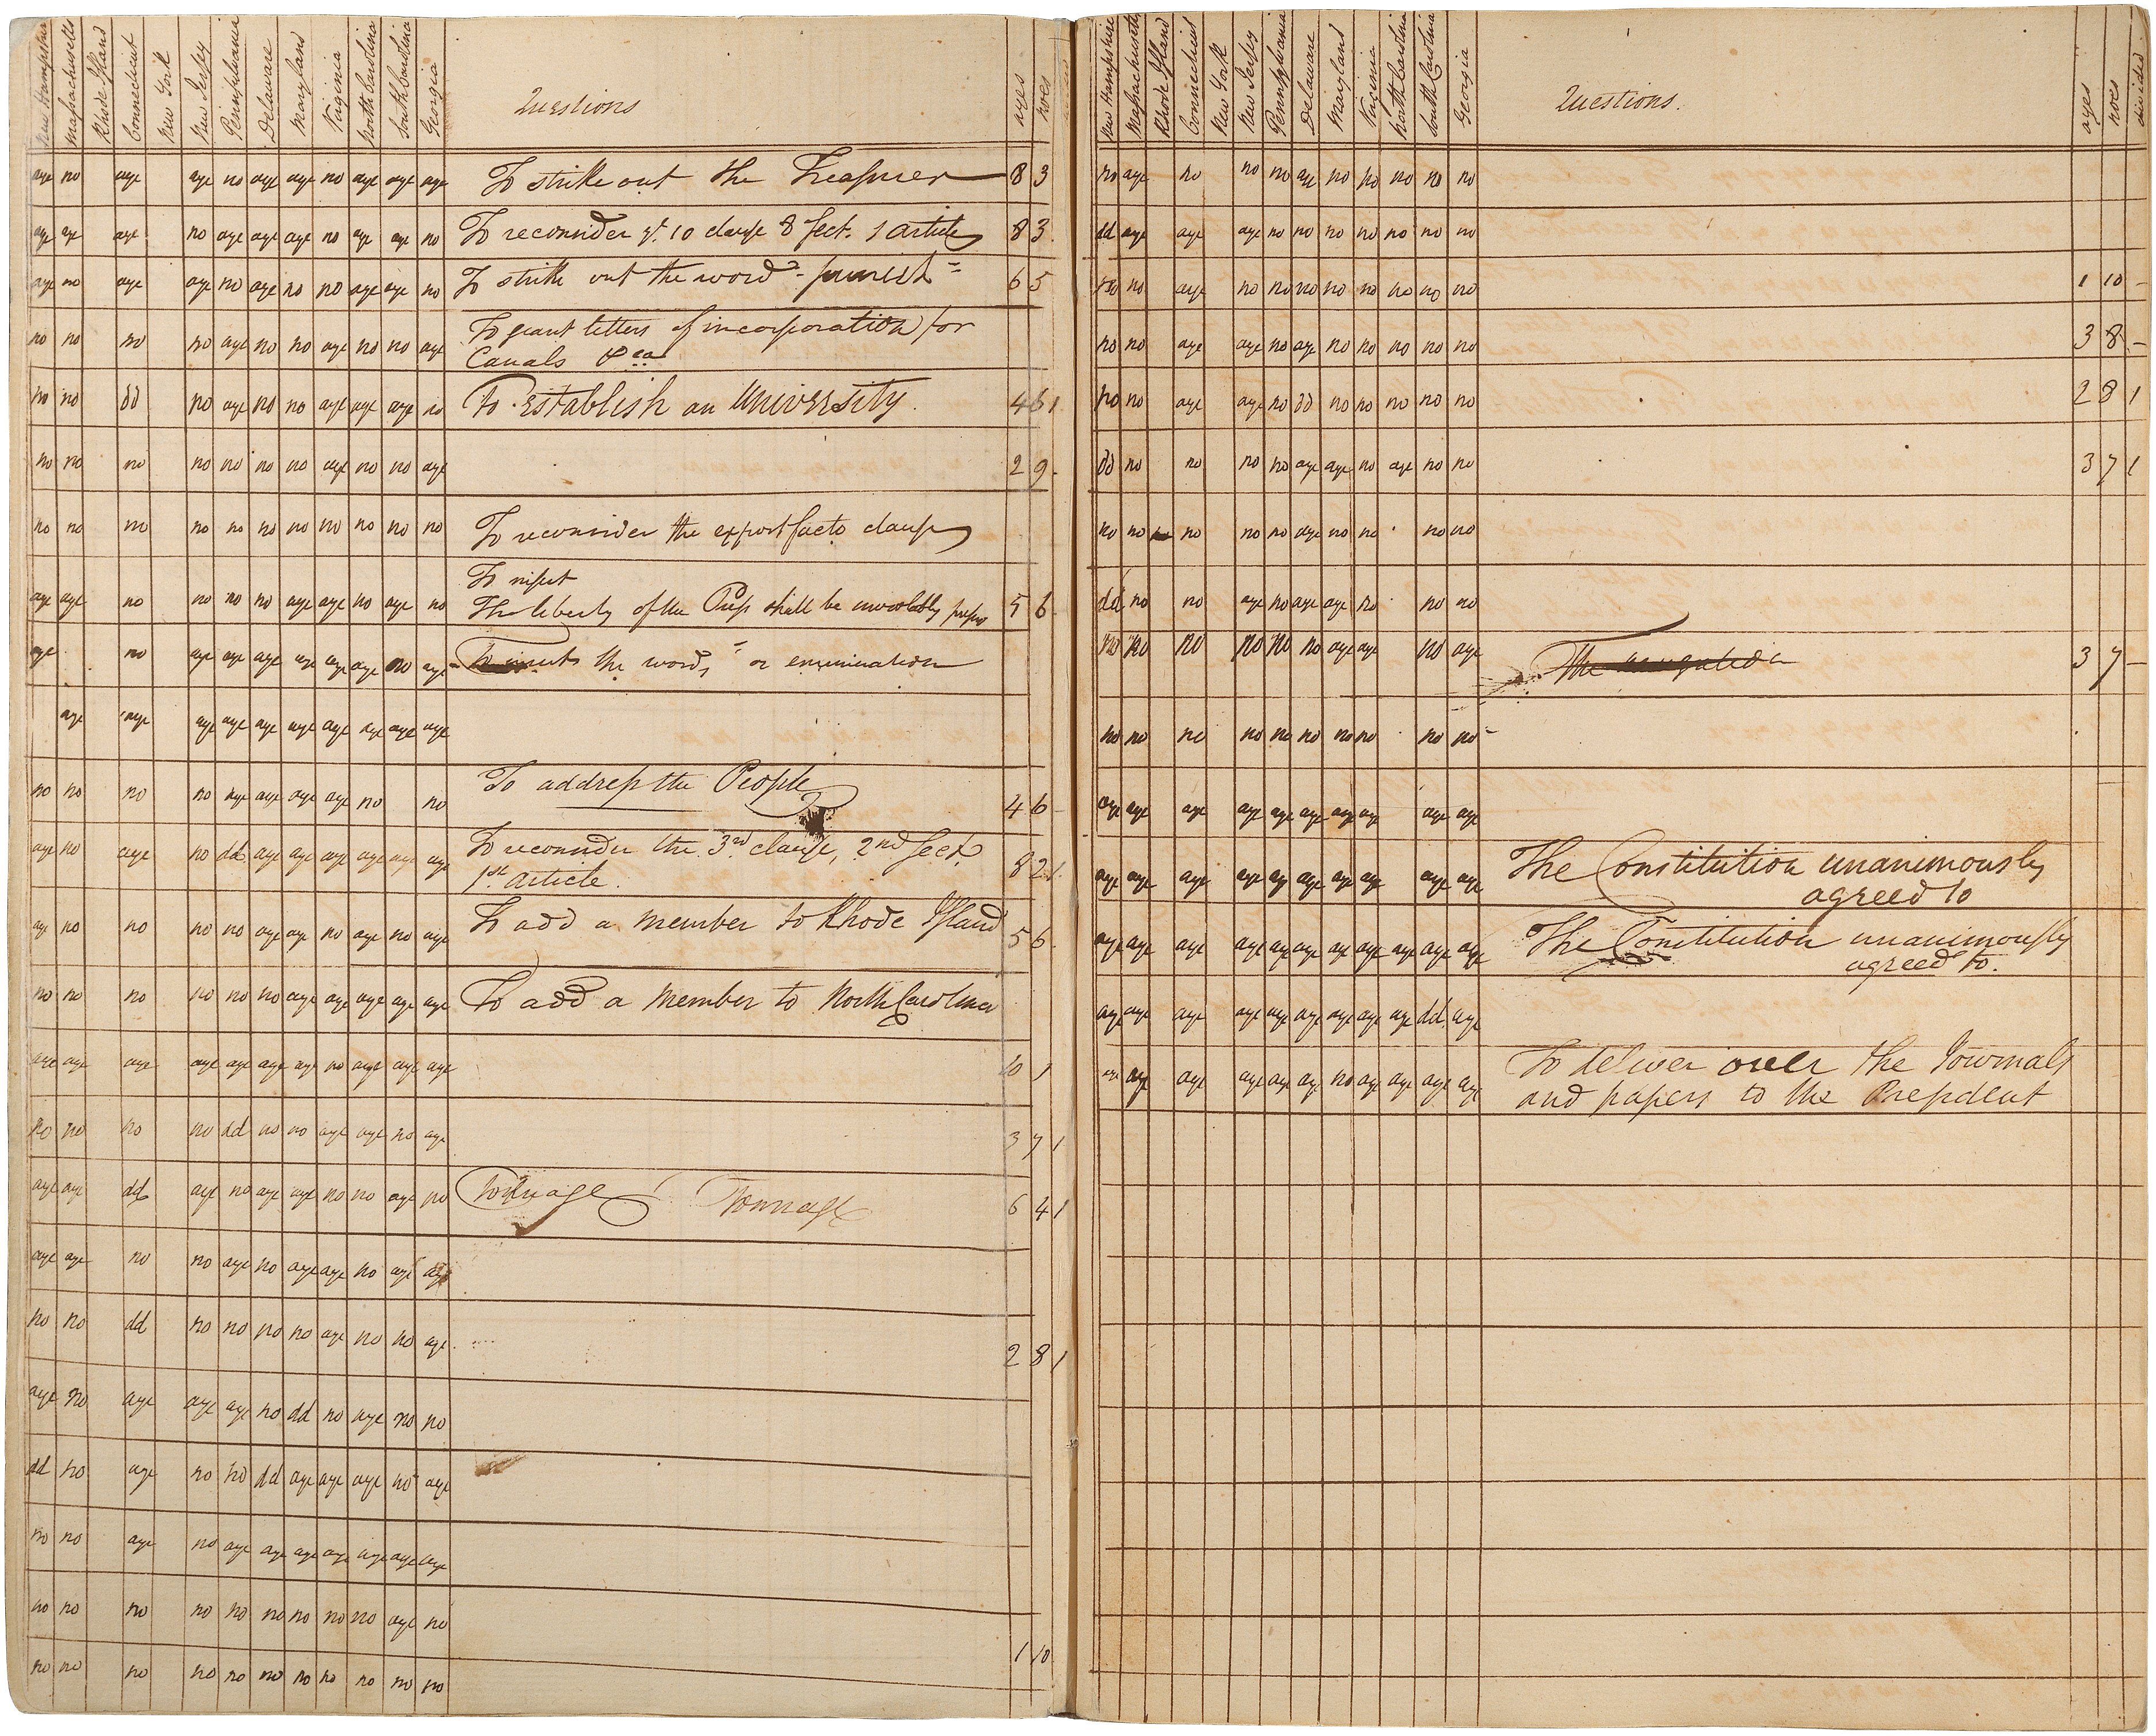 New Hampshire Massachusetts Rhode Island Connecticut New York New Jersey Pennsylvania Delaware Maryland Virginia North Carolina South Carolina Georgia Questions ayes noes
aye no aye aye no aye aye no aye aye aye To strike out the Treasurer 8 3
aye aye aye no aye aye aye no aye aye no To reconsider yt. 10 clause 8 sect. 1 article 8 3
aye no aye aye no aye no no aye aye no To strike out the word "punish" 6 5
no no no no aye no no aye no no aye To grant letters of incorporation for
Canals &ca
no no dd no aye no no aye aye aye no To Establish an University. 4 6 1
no no no no no no no aye no no aye 2 9 -
no no no no no no no no no no no To reconsider the expost facto clause
To insert
aye aye no no no no aye aye no aye no The liberty of the Press shall be inviolably preser 5 6
aye no aye aye aye aye aye aye no aye the words "or enumeration
aye aye aye aye aye aye aye aye aye aye
no no no no aye aye aye aye no no To address the People 4 6 -
aye no aye no dd aye aye aye aye aye aye To reconsider the 3rd clause, 2nd sect. 8 2 1
1st article.
aye no no no no aye aye no aye no aye To add a member to Rhode Island 5 6 -
no no no no no no aye aye aye aye aye To add a member to North Carolina
aye aye aye aye aye aye aye no aye aye aye 10 1
no no no no dd no no aye aye no aye 3 7 1
aye aye dd aye no aye aye no no aye no Tonnage Tonnage 6 4 1
aye aye no no aye no aye aye no aye aye
no no dd no no no no aye no no aye 2 8 1
aye no aye aye aye no dd no aye no no
dd no aye no no dd aye aye aye no aye
no no aye no aye aye aye aye aye aye aye
no no no no no no no no no aye no 1 10
no no no no no no no no no no no
New Hampshire Massachusetts Rhode Island Connecticut New York New Jersey Pennsylvania Delaware Maryland Virginia North Carolina South Carolina Georgia Questions. ayes noes divided
no aye no no no aye no no no no no
dd aye aye aye no no no no no no no
no no aye no no no no no no no no 1 10 -
no no aye aye no aye no no no no no 3 8 -
no no aye aye no dd no no no no no 2 8 1
dd no no no no aye aye no aye no no 3 7 1
no no no no no no aye no no no no
dd no no aye no aye aye no no no
no no no no no no aye aye no aye The 3 7 -
no no no no no no no no no no
aye aye aye aye aye aye aye aye aye aye
aye aye aye aye aye aye aye aye aye aye The Constitution unanimously
agreed to
aye aye aye aye aye aye aye aye aye aye aye The Constitution unanimously
agreed to.
aye aye aye aye aye aye aye aye aye dd aye
aye aye aye aye aye aye no aye aye aye aye To deliver over the Journals
and papers to the President